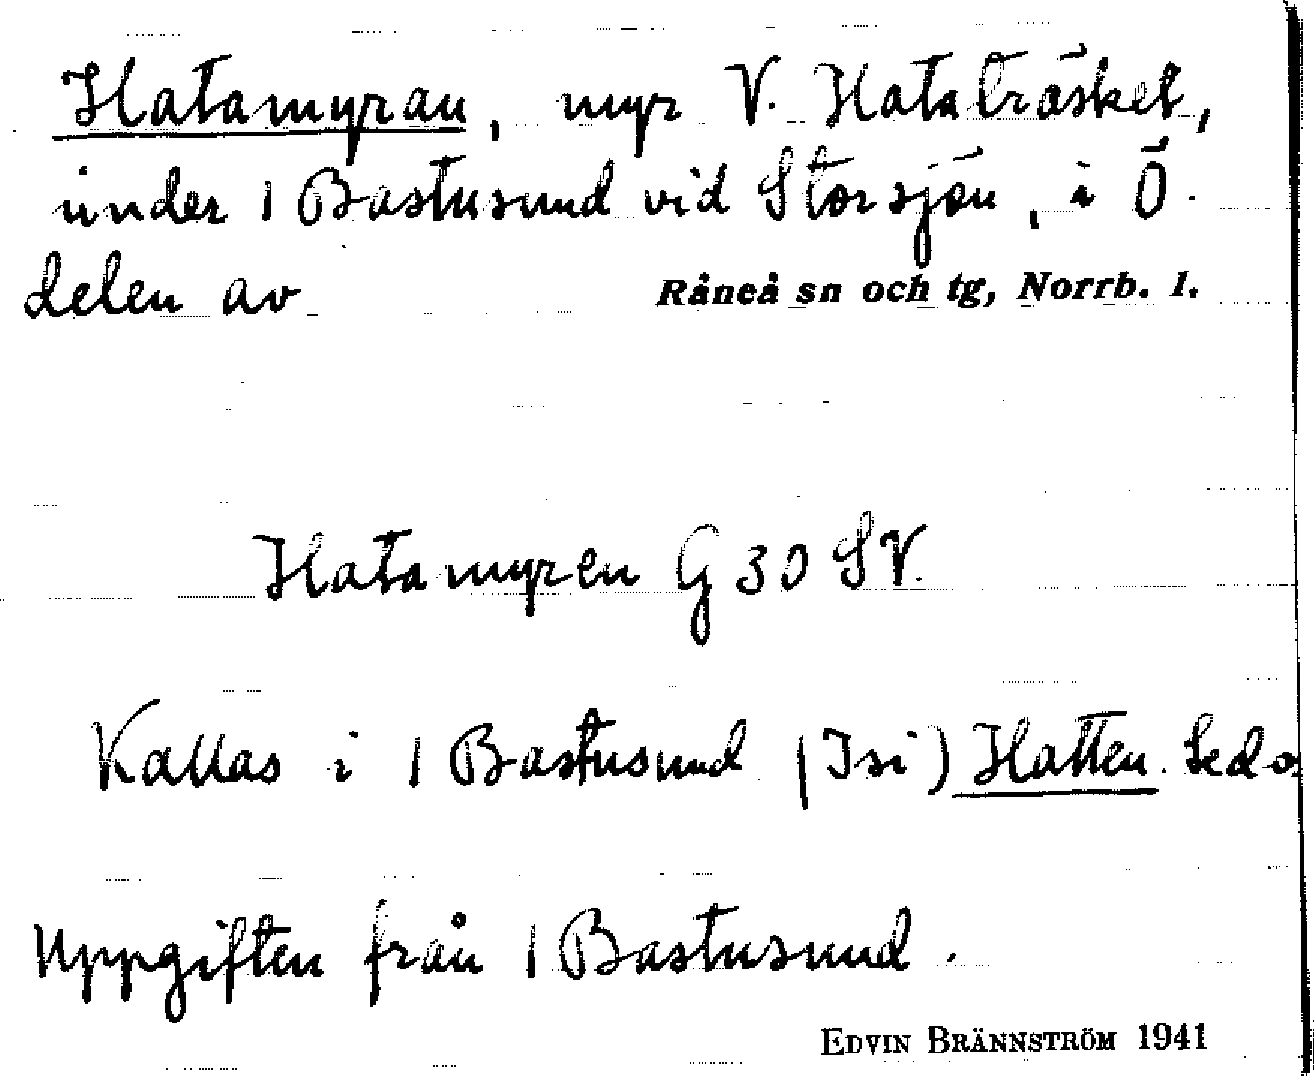 Hatamyran, myr V. Hataträsket,
under 1 Bastusund vid Storsjön, i Ö.
delen av Råneå sn och tg, Norrb. l.
Hatamyren G 30 SV.
Kallas i 1 Bastusund (Isi) Hatten. Se do
Uppgiften från 1 Bastusund.
EDVIN BRÄNNSTRÖM 1941